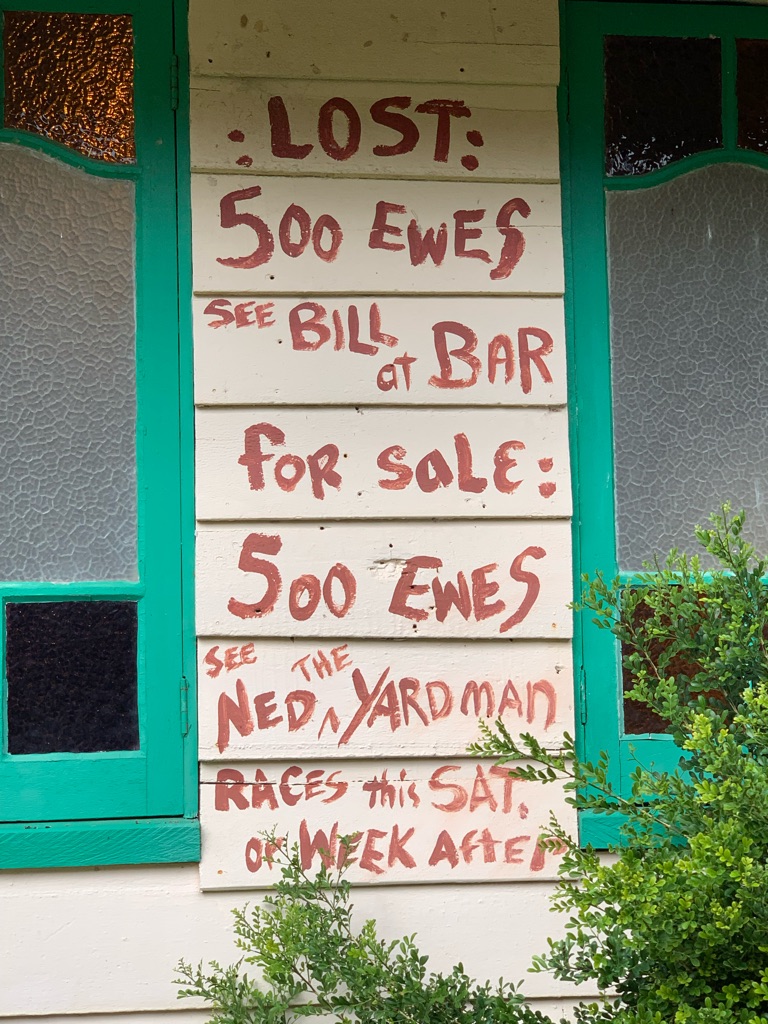 :LOST:
500 EWES
SEE BILL at BAR
for saLE:
500 EWES
SEE NED THE YARDMAN
RACES this SAT.
or WEEK AftER